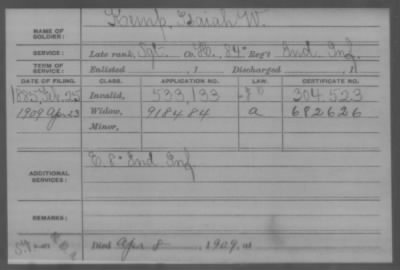 NAME OF SOLDIER: Kemp, Isaiah W.
SERVICE: Late rank, Sgt. Co. H, 84" Reg't Ind Inf.
TERM OF SERVICE: Enlisted , 1 Discharged , 1
DATE OF FILING. CLASS. APPLICATION NO. LAW. CERTIFICATE NO.
1885, 25 Invalid, 533,133 304,523
1909 Apr 23 Widow, 918484 a 682626
Minor,
ADDITIONAL SERVICES: E. 8" Ind Inf
REMARKS:
Died Apr 8, 1909, at